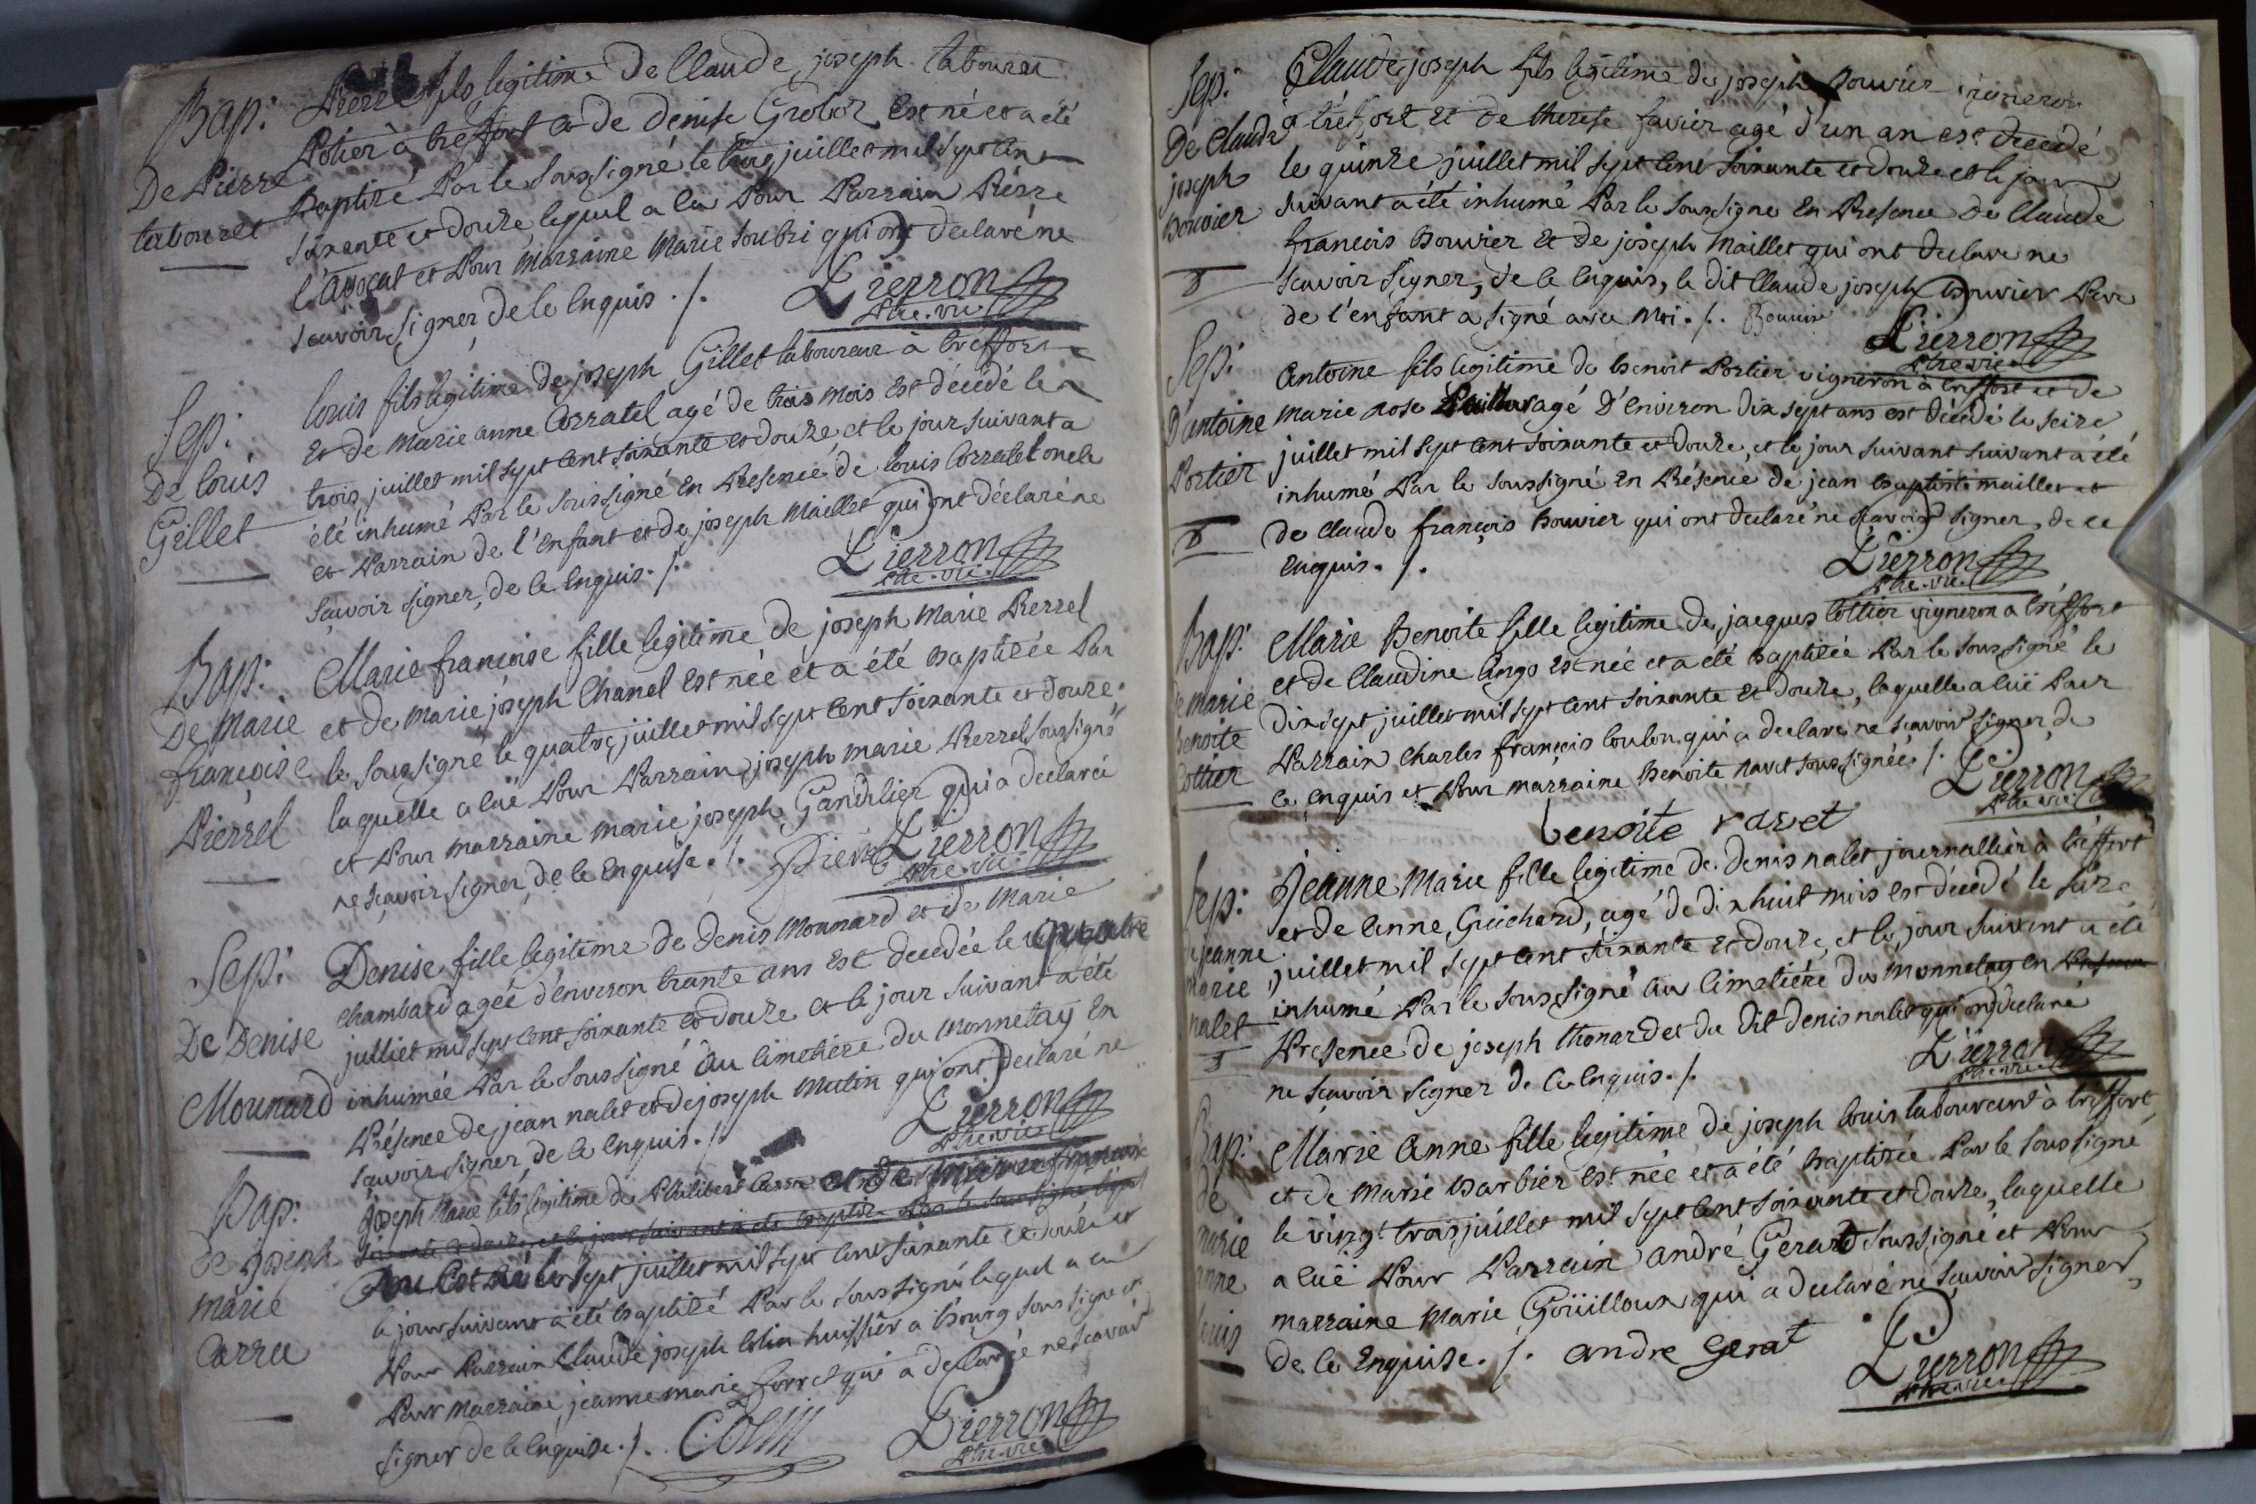 Bap:
De Pierre
tabouret
Pierre fils legitime De Claude joseph tabouret
Potier à treffort et de Denise Grobor est né et a été
Baptizé Par le Soussigné le juillet mil sept cent
soixante et douze lequel a eu Pour Parrain Pierre
l'avocat et Pour Marraine Marie Soubri qui ont declaré ne
scavoir signer de ce Enquis ./.
Pierron
Ptre vic.
Sep:
De louis
Gillet
louis fils legitime de joseph Gillet laboureur à treffort
Et de Marie anne Corratel agé de trois mois est décédé le
trois juillet mil sept cent soixante et douze et le jour suivant a
été inhumé Par le soussigné En Présence de louis Corratel oncle
et Parrain de l'Enfant et de joseph Maillet qui ont déclaré ne
sçavoir signer, de ce Enquis ./.
Pierron
Ptre. vic.
Bap:
De Marie
françoise
Pierrel
Marie françoise fille legitime de joseph Marie Pierrel
et de Marie joseph Chanel est née et a été Baptizée Par
le soussigné le quatre juillet mil sept cent soixante et douze
laquelle a eüe Pour Parrain joseph marie Pierrel soussigné
et Pour marraine marie joseph Gandilier qui a declarée
ne sçavoir signer de ce Enquise ./.
Pierron
Ptre vic.
Sep:
De Denise
Mounard
Denise fille legitime de Denis Mounard et de Marie
Chambard agée d'environ trante ans est decedée le quatre
julliet mil sept cent soixante et douze et le jour suivant a été
inhumée Par le soussigné Au Cimetiere du Monnetay En
Présence de jean nalet et de joseph Mutin qui ont declaré ne
sçavoir signer de ce Enquis ./.
Pierron
Ptre vic
Bap:
De joseph
marie
Carru
joseph Marie fils legitime de Philibert Carru et de françoise
soixante et douze et le jour suivant a été baptizé Par le soussigné lequel
est né le sept juillet mil sept cent soixante et douze et
le jour suivant a été Baptizé Par le soussigné lequel a eu
Pour Parrain Claude joseph Colin huissier a Bourg soussigné et
Pour Marraine jeanne marie forret qui a declarée ne scavoir
signer de ce Enquise ./. Colin
Pierron
Ptre vic
Sep:
De Claude
joseph
Bouvier
Claude joseph fils legitime de joseph Bouvier vigneron
à tréffort et de therese favier agé d'un an est decédé
le quinze juillet mil sept cent soixante et douze et le jour
suivant a été inhumé Par le soussigné En Presence de Claude
françois Bouvier et de joseph Maillet qui ont declaré ne
scavoir signer, de ce Enquis, le dit Claude joseph Bouvier Pere
de l'enfant a signé avec Moi ./. Bouvier
Pierron
Ptre vic
Sep:
D'antoine
Portier
Antoine fils legitime de Benoit Portier vigneron à treffort et de
Marie Rose agé d'environ Dix sept ans est décédé le seize
juillet mil sept cent soixante et douze, et le jour suivant suivant a été
inhumé Par le soussigné En Présence de jean baptiste maillet et
de Claude françois Bouvier qui ont declaré ne sçavoir signer, de ce
Enquis ./.
Pierron
Ptre vic.
Bap:
De marie
Benoite
Cottier
Marie Benoite fille legitime de jacques Cottier vigneron a tréffort
et de Claudine Ango est née et a été Baptizée Par le soussigné le
Dix sept juillet mil sept cent soixante et douze, laquelle a eüe Pour
Parrain Charles françois Coulon qui a declaré ne scavoir signer de
ce Enquis et Pour marraine Benoite ravet soussignée ./.
Pierron
Ptre vic
benoite ravet
Sep:
De jeanne
Marie
nalet
Jeanne Marie fille legitime de Denis nalet journallier à tréffort
et de Anne Guichard, agé de dix huit mois est décedé le seize
juillet mil sept cent soixante et douze, et le jour suivant a été
inhumé Par le soussigné Au Cimetiére du Monnetay En Presence
Presence de joseph thonard et du Dit Denis nalet qui ont declaré
ne sçavoir signer de ce Enquis ./.
Pierron
Ptre vic
Bap:
De
marie
anne
louis
Marie Anne fille legitime de joseph louis laboureur à tréffort
et de Marie Barbier est née et a été Baptizée Par le soussigné
le vingt trois juillet mil sept cent soixante et douze, laquelle
a eüe Pour Parrain andré Gerard soussigné et Pour
marraine Marie Goüilloux qui a declaré ne sçavoir signer
de ce Enquise ./. andre Gerat
Pierron
Ptre vic